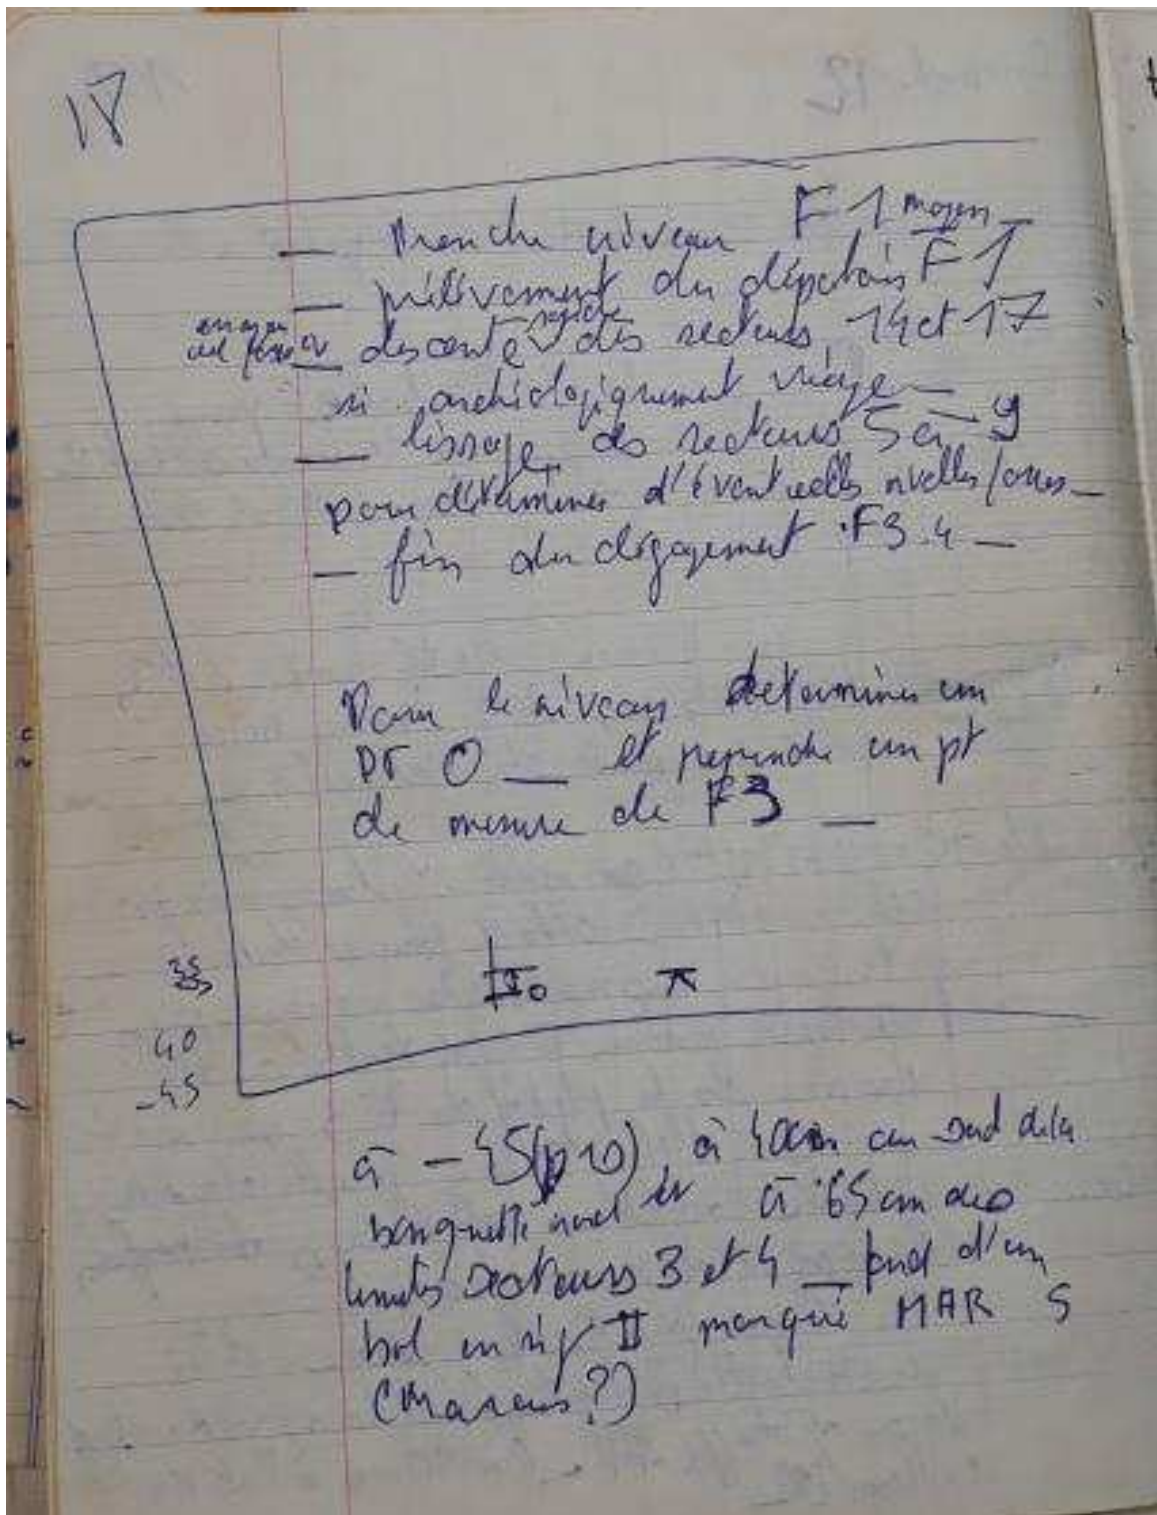 18
— Prendre niveau F1 moyen —
— prélèvement du dépotoir F1
— descente rapide des secteurs 14 et 17
si archéologiquement vierge —
— lissage des secteurs 5 à 9
pour déterminer d'éventuelles nvelles fosses —
— fin du dégagement F3.4 —
Pour le niveau determiner un
pt 0 — et reprendre un pt
de mesure de F3 —
35
40
-45
à -45 (p 0), à 40cm au sud de la
banquette nord et à 65 cm des
limites secteurs 3 et 4 — fond d'un
bol en sig II marqué MAR S
(Marcus?)